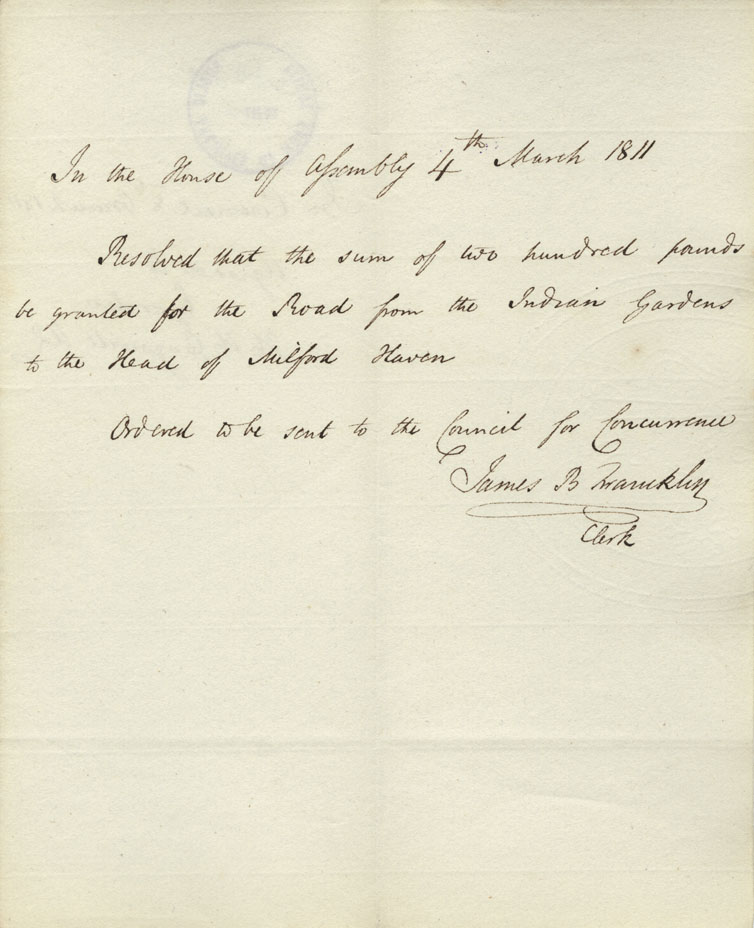 In the House of Assembly 4th March 1811
Resolved that the sum of two hundred pounds
be granted for the Road from the Indian Gardens
to the Head of Milford Haven
Ordered to be sent to the Council for Concurrence
James B Francklin
Clerk